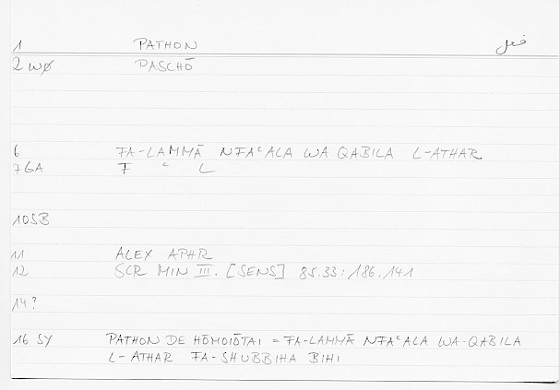 1 PATHON
2 WØ PASCHŌ
6 FA-LAMMĀ NFAᶜALA WA QABILA L-ATHAR
7 GA F ᶜ L
10 SB
11 ALEX APHR
12 SCR MIN III. [SENS] 85.33: 186.141
14 ?
16 SY PATHON DE HŌMOIŌTAI = FA-LAMMĀ NFAᶜALA WA-QABILA
L-ATHAR FA-SHUBBIHA BIHI